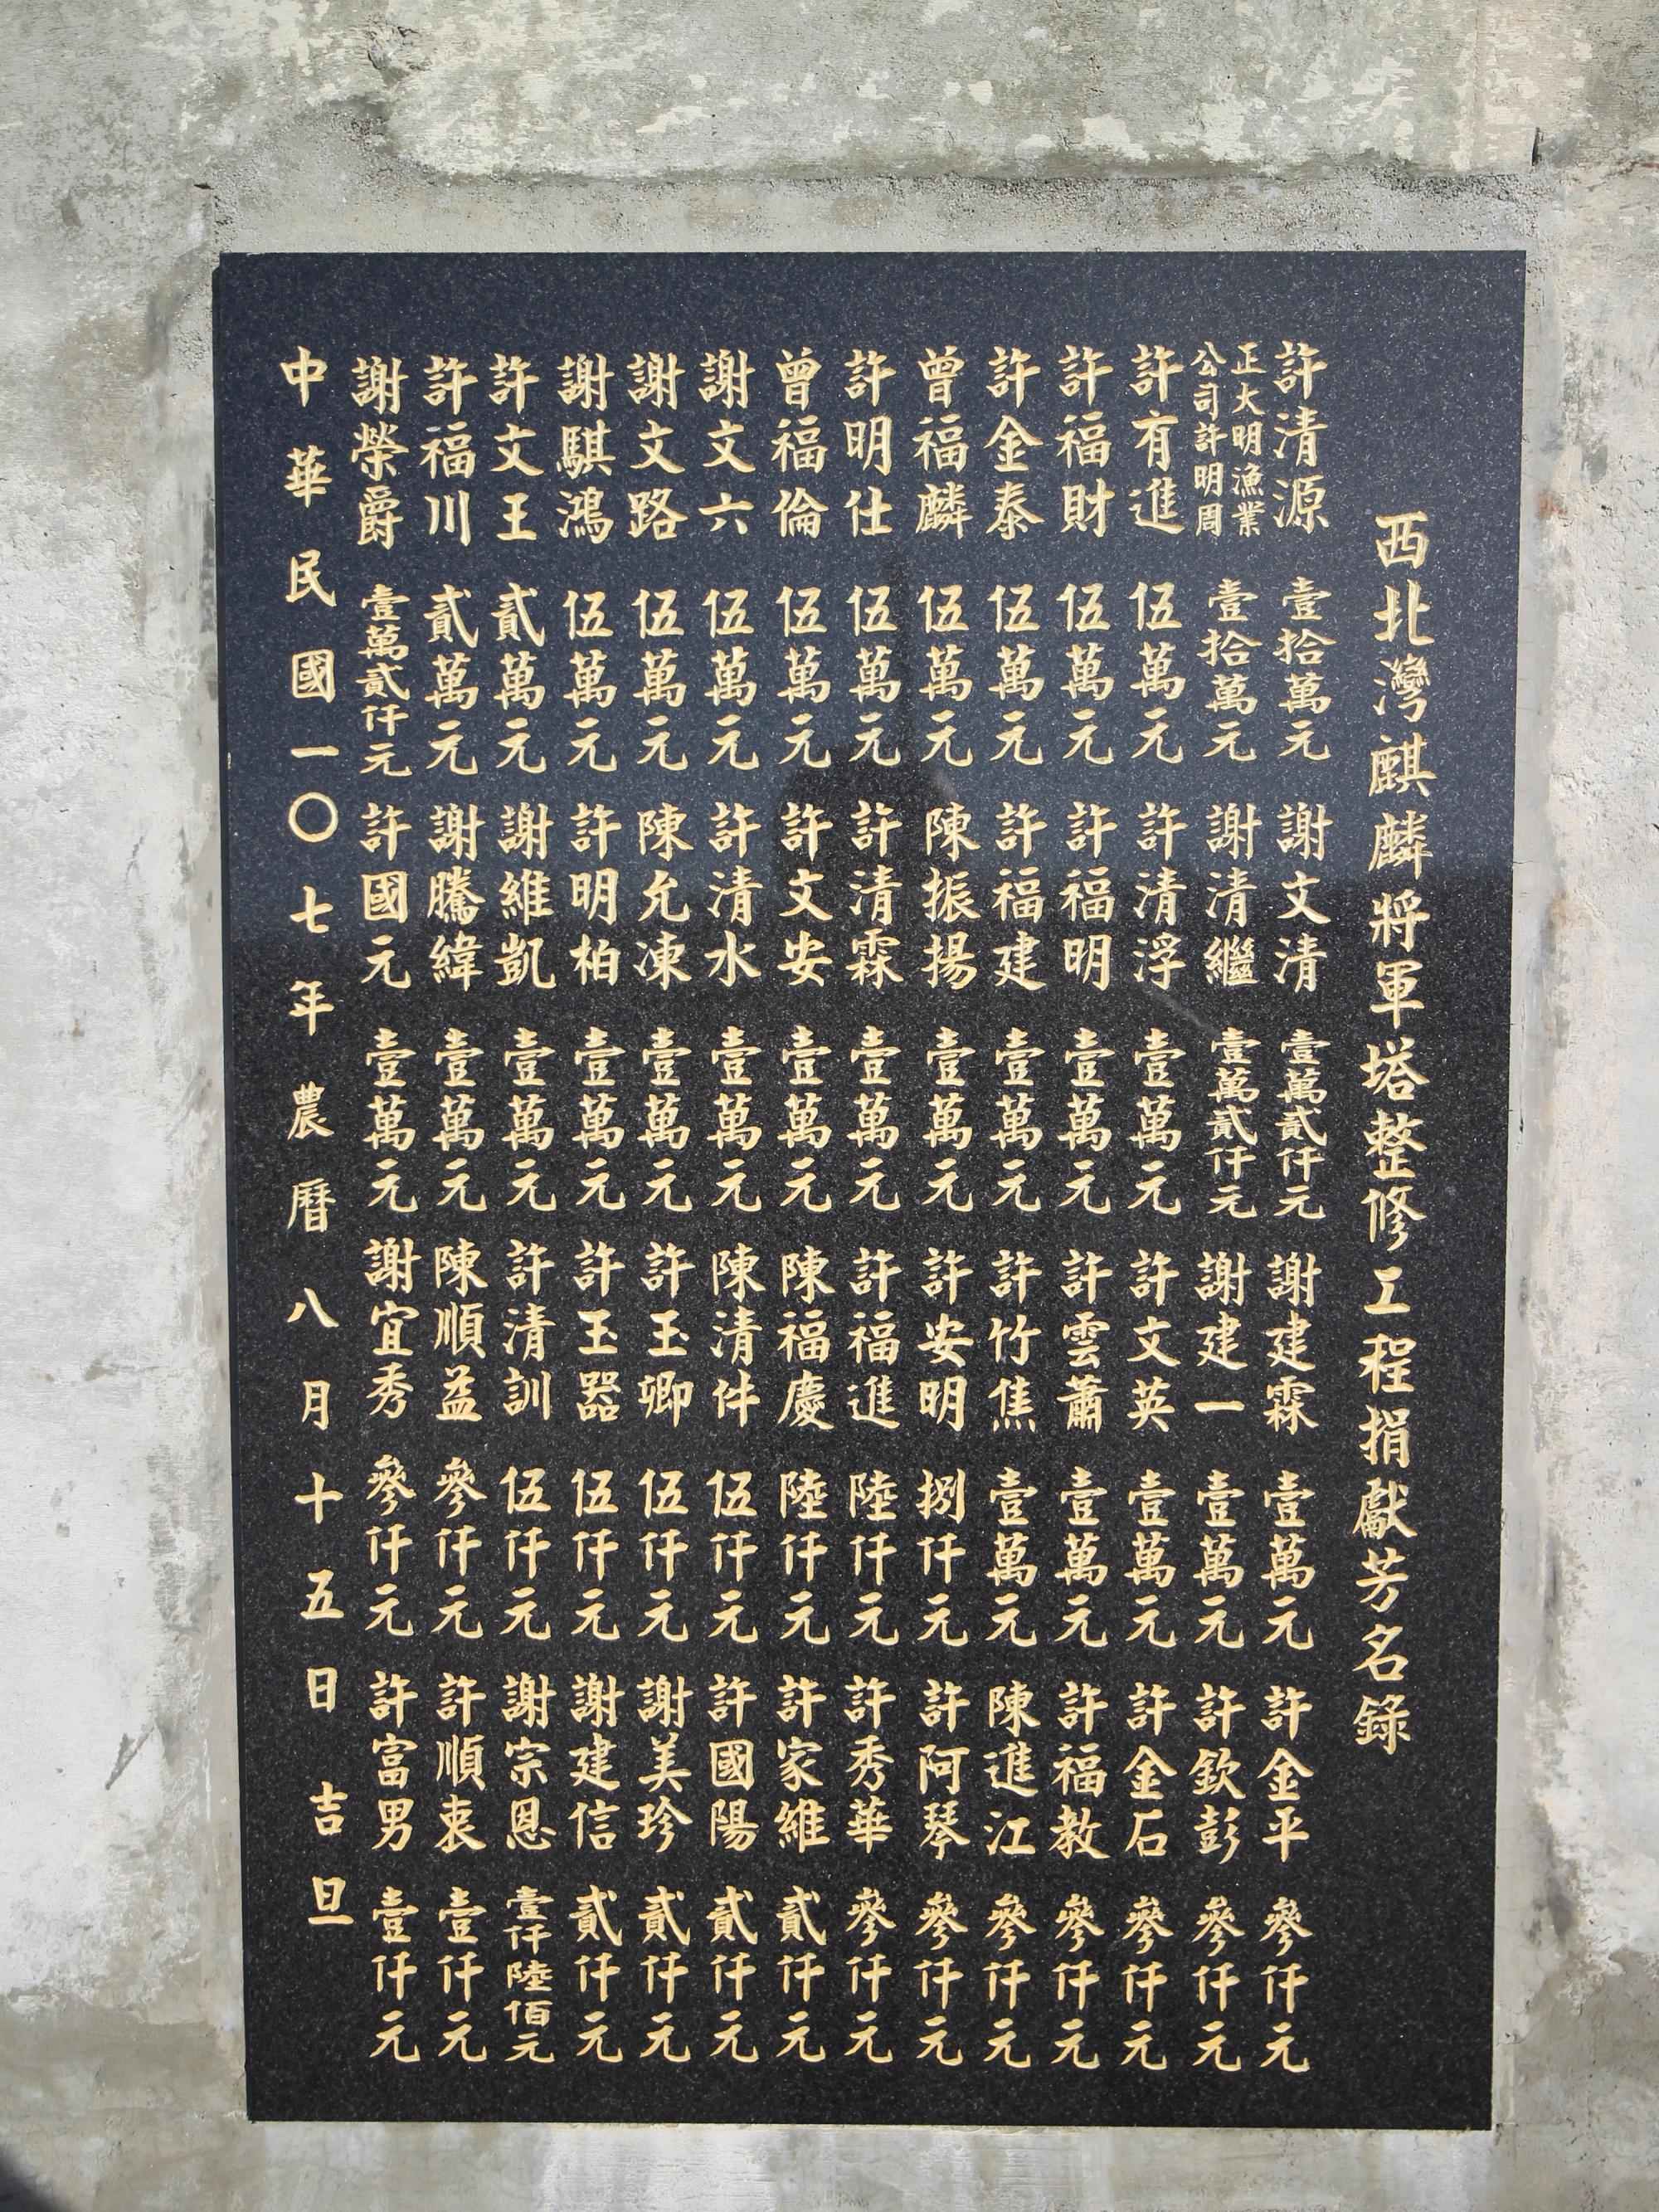 西北灣麒麟將軍塔整修工程捐獻芳名錄
許清源 壹拾萬元 謝文清 壹萬貳仟元 謝建霖 壹萬元 許金平 參仟元
正大明漁業公司許明周 壹拾萬元 謝清繼 壹萬貳仟元 謝建一 壹萬元 許欽彭 參仟元
許有進 伍萬元 許清浮 壹萬元 許文英 壹萬元 許金石 參仟元
許福財 伍萬元 許福明 壹萬元 許雲蕭 壹萬元 許福教 參仟元
許金泰 伍萬元 許福建 壹萬元 許竹焦 壹萬元 陳進江 參仟元
曾福麟 伍萬元 陳振揚 壹萬元 許安明 捌仟元 許阿琴 參仟元
許明仕 伍萬元 許清霖 壹萬元 許福進 陸仟元 許秀華 參仟元
曾福倫 伍萬元 許文安 壹萬元 陳福慶 陸仟元 許家維 貳仟元
謝文六 伍萬元 許清水 壹萬元 陳清件 伍仟元 許國陽 貳仟元
謝文路 伍萬元 陳允凍 壹萬元 許玉卿 伍仟元 謝美珍 貳仟元
謝騏鴻 伍萬元 許明柏 壹萬元 許玉器 伍仟元 謝建信 貳仟元
許文王 貳萬元 謝維凱 壹萬元 許清訓 伍仟元 謝宗恩 壹仟陸佰元
許福川 貳萬元 謝騰緯 壹萬元 陳順益 參仟元 許順衷 壹仟元
謝榮爵 壹萬貳仟元 許國元 壹萬元 謝宜秀 參仟元 許富男 壹仟元
中華民國一〇七年農曆八月十五日吉旦